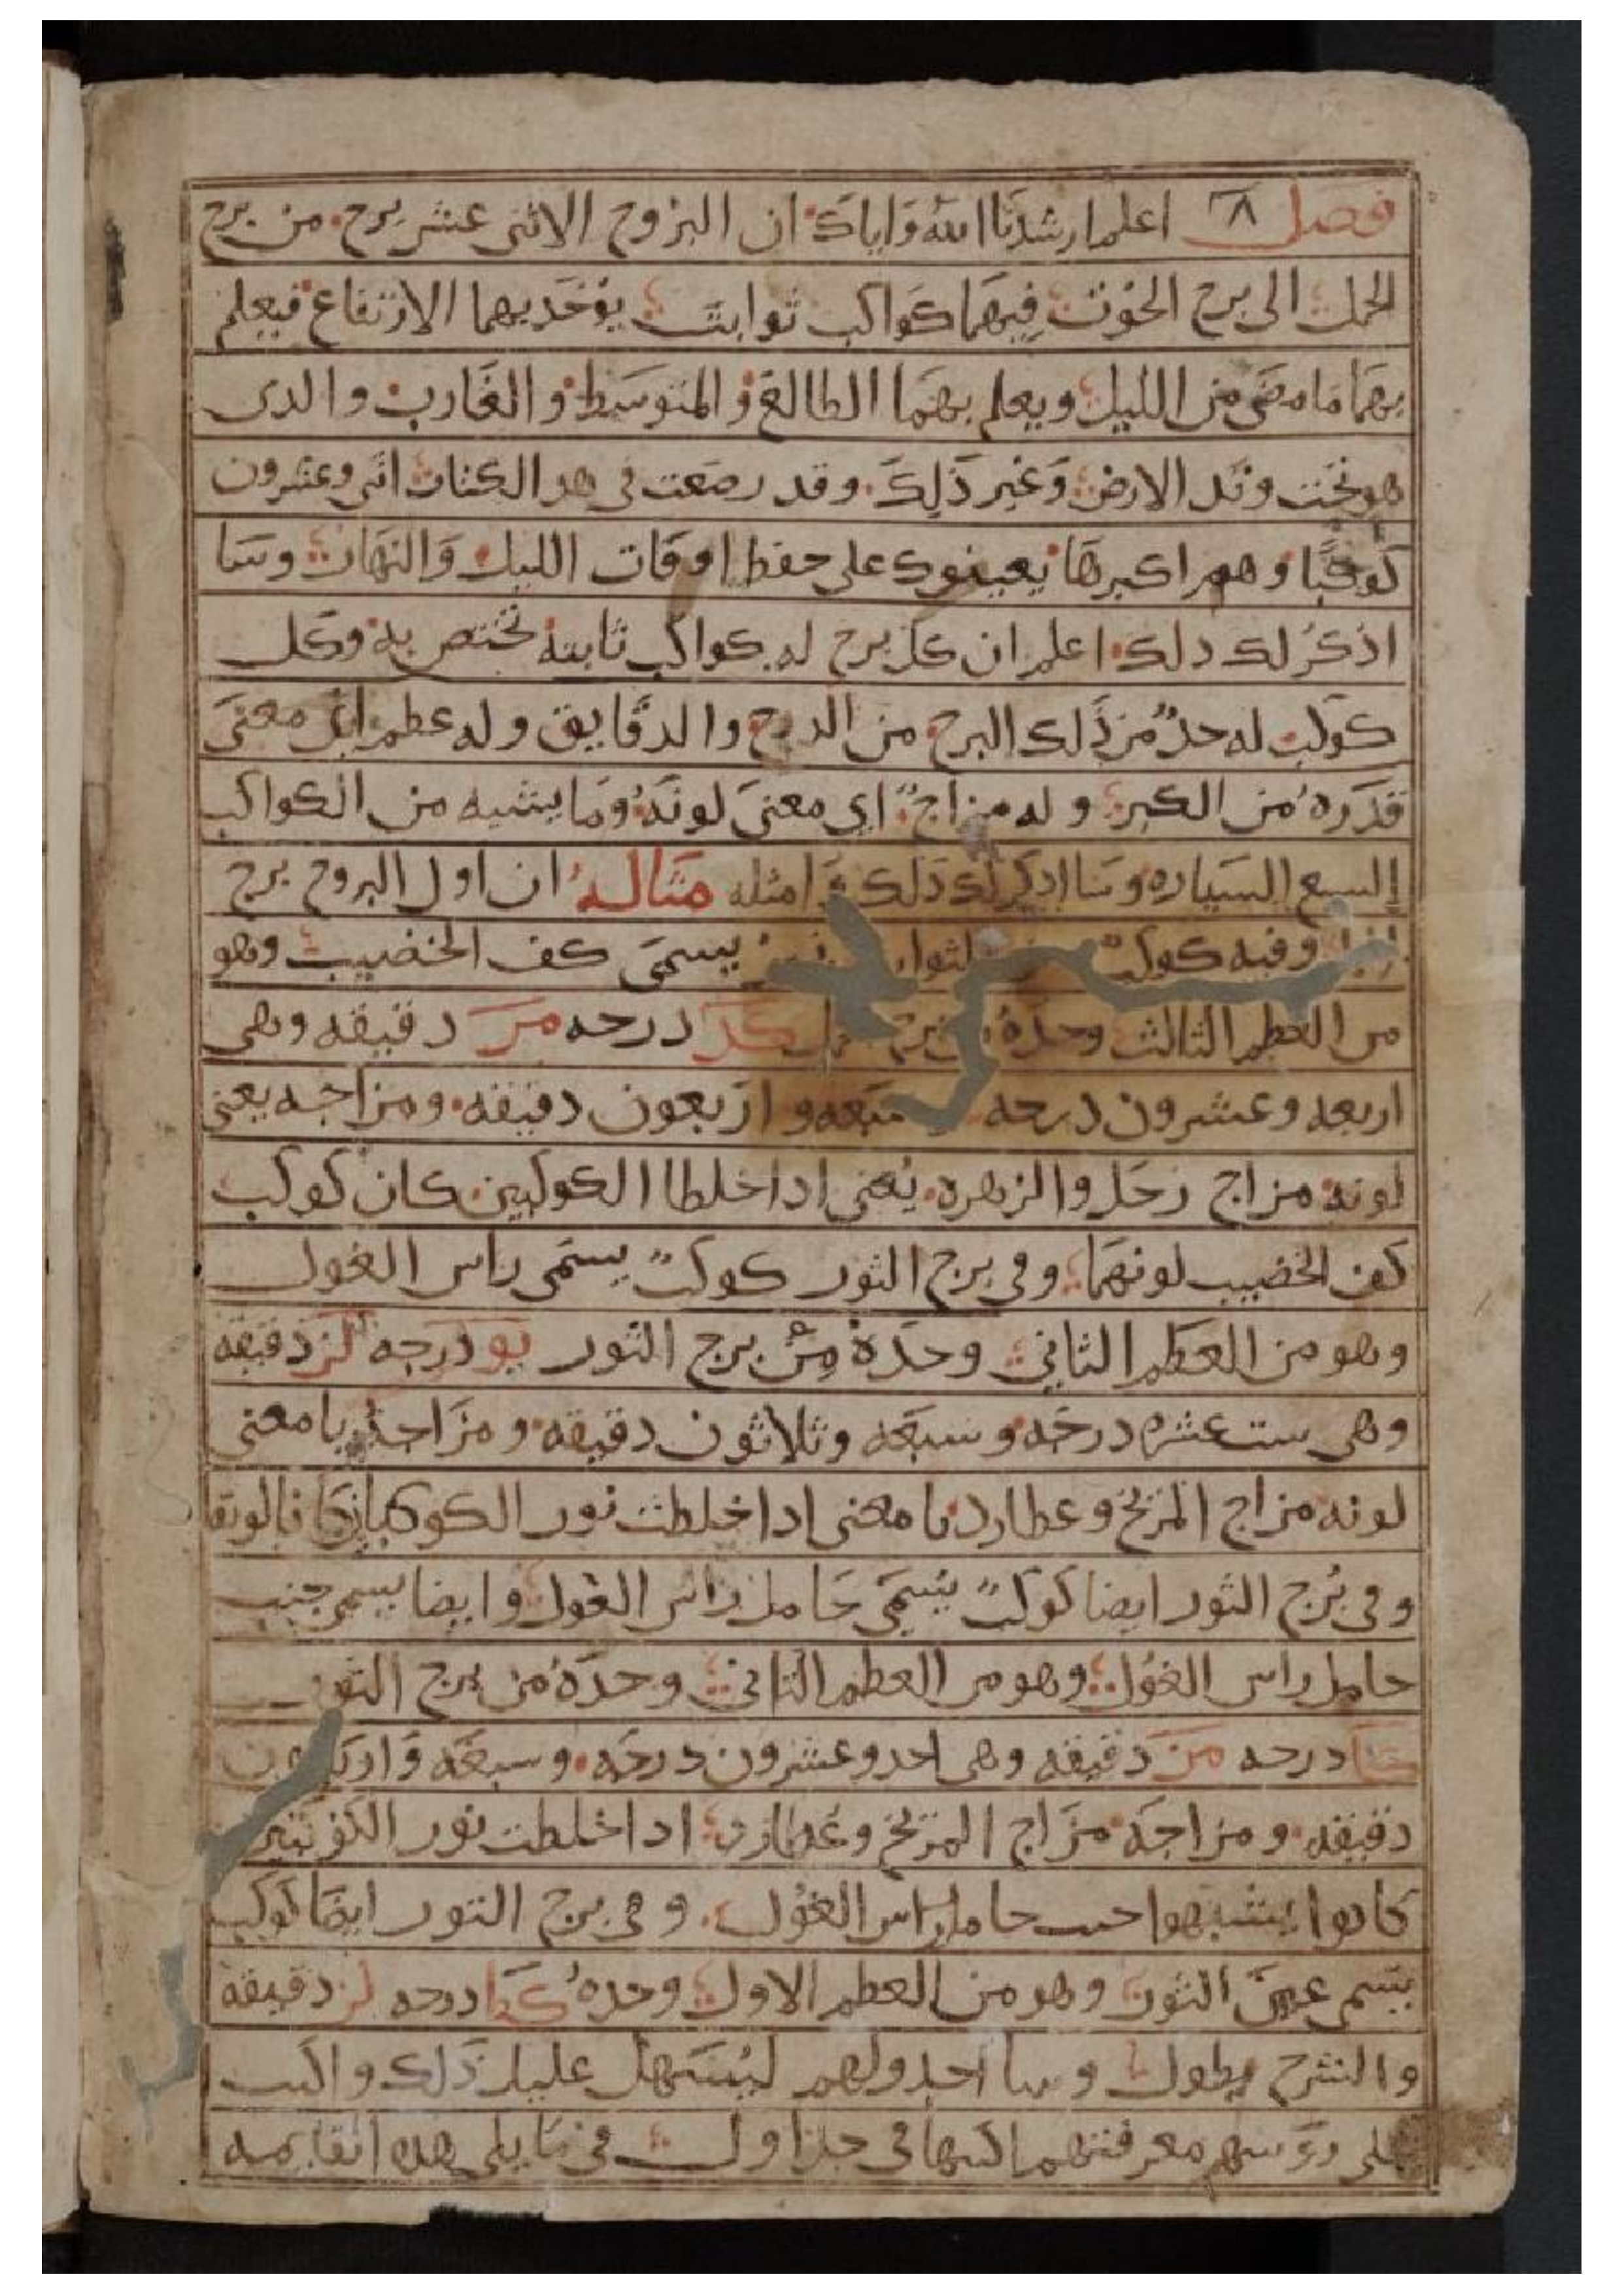 فصل ٨ اعلم ارشدنا الله واياك ان البروج الاثنى عشر برج من برج
الحمل الى برج الحوت فيهما كواكب ثوابت يوخد بهما الارتفاع فيعلم
بهما ما مضى من الليل ويعلم بهما الطالع والمتوسط والغارب والدى
هو تحت وتد الارض وغير ذلك وقد وضعت فى هدا الكتاب اثنى وعشرون
كوكبًا وهم اكبرها يعينوك على حفظ اوقات الليل والنهار وسا
اذكر لك دلك اعلم ان كل برج له كواكب ثابته تختص به وكل
كوكب له حدٌ من ذلك البرج من الدرج والدقايق وله عظم اى معنى
قدره من الكبر وله مزاج اي معنى لونه وما يشبه من الكواكب
السبع السياره وسا ادكر لك ذلك وامثله مثاله ان اول البروج برج
وفيه كوكب يسمى كف الخضيب وهو
من العظم الثالث وحده من برج كد درجه مز دقيقه وهى
اربعه وعشرون درجه وسبعه واربعون دقيقه ومزاجه يعنى
لونه مزاج زحل والزهره يعنى ادا خلطا الكوكبين كان كوكب
كف الخضيب لونهما وفى برج الثور كوكب يسمى راس الغول
وهو من العظم الثاني وحده من برج الثور يو درجه لز دقيقه
وهى ست عشره درجه وسبعه وثلاثون دقيقه ومزاجه يا معنى
لونه مزاج المريخ وعطارد يا معنى ادا خلطت نور الكوكبان كانا لونها
وفى برج الثور ايضا كوكبٌ يسمى حامل راس الغول وايضا يسمى جنب
حامل راس الغول وهو من العظم الثانى وحده من برج الثور
كا درجه مز دقيقه وهى احد وعشرون درجه وسبعه واربعون
دقيقه ومزاجه مزاج المريخ وعطارد ادا خلطت نور الكوكبين
كانوا يشبهوا جنب حامل راس الغول وفى برج الثور ايضا كوكب
يسمى عين الثور وهو من العظم الاول وحده درجه لز دقيقه
والشرح يطول وسا اجدولهم ليسهل عليك ذلك واكتب
على روسهم معرفتهم اكتبها فى جداول فى ما يلى هده القايمه